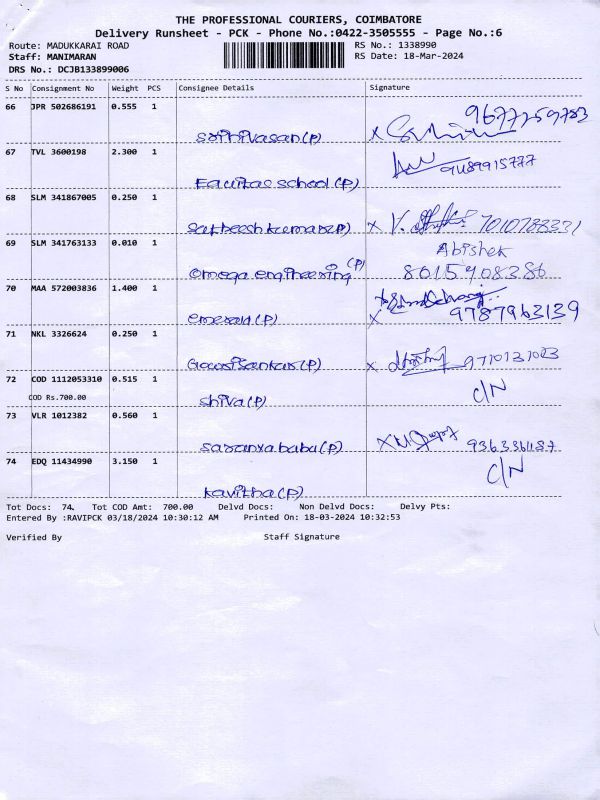 THE PROFESSIONAL COURIERS, COIMBATORE
Delivery Runsheet - PCK - Phone No.:0422-3505555 - Page No.:6
Route: MADUKKARAI ROAD
RS No.: 1338990
Staff: MANIMARAN
RS Date: 18-Mar-2024
DRS No.: DCJB133899006
S No Consignment No Weight PCS Consignee Details Signature
66 JPR 502686191 0.555 1
9677259783
Srinivasan (P) x
67 TVL 3600198 2.300 1
9489915777
Equitas School (P)
68 SLM 341867005 0.250 1
Satheesh kumar (P) x V. 7010788331
69 SLM 341763133 0.010 1 Abishek
omega engineering (P) 8015408386
70 MAA 572003836 1.400 1
emerald (P) x 9787963139
71 NKL 3326624 0.250 1
Gowrisankar (P) x 9710131023
72 COD 1112053310 0.515 1
COD Rs.700.00 C/N
Shiva (P)
73 VLR 1012382 0.560 1
Saranya babu (P) x 936336187
74 EDQ 11434990 3.150 1 C/N
Kavitha (P)
Tot Docs: 74. Tot COD Amt: 700.00 Delvd Docs: Non Delvd Docs: Delvy Pts:
Entered By :RAVIPCK 03/18/2024 10:30:12 AM Printed On: 18-03-2024 10:32:53
Verified By Staff Signature